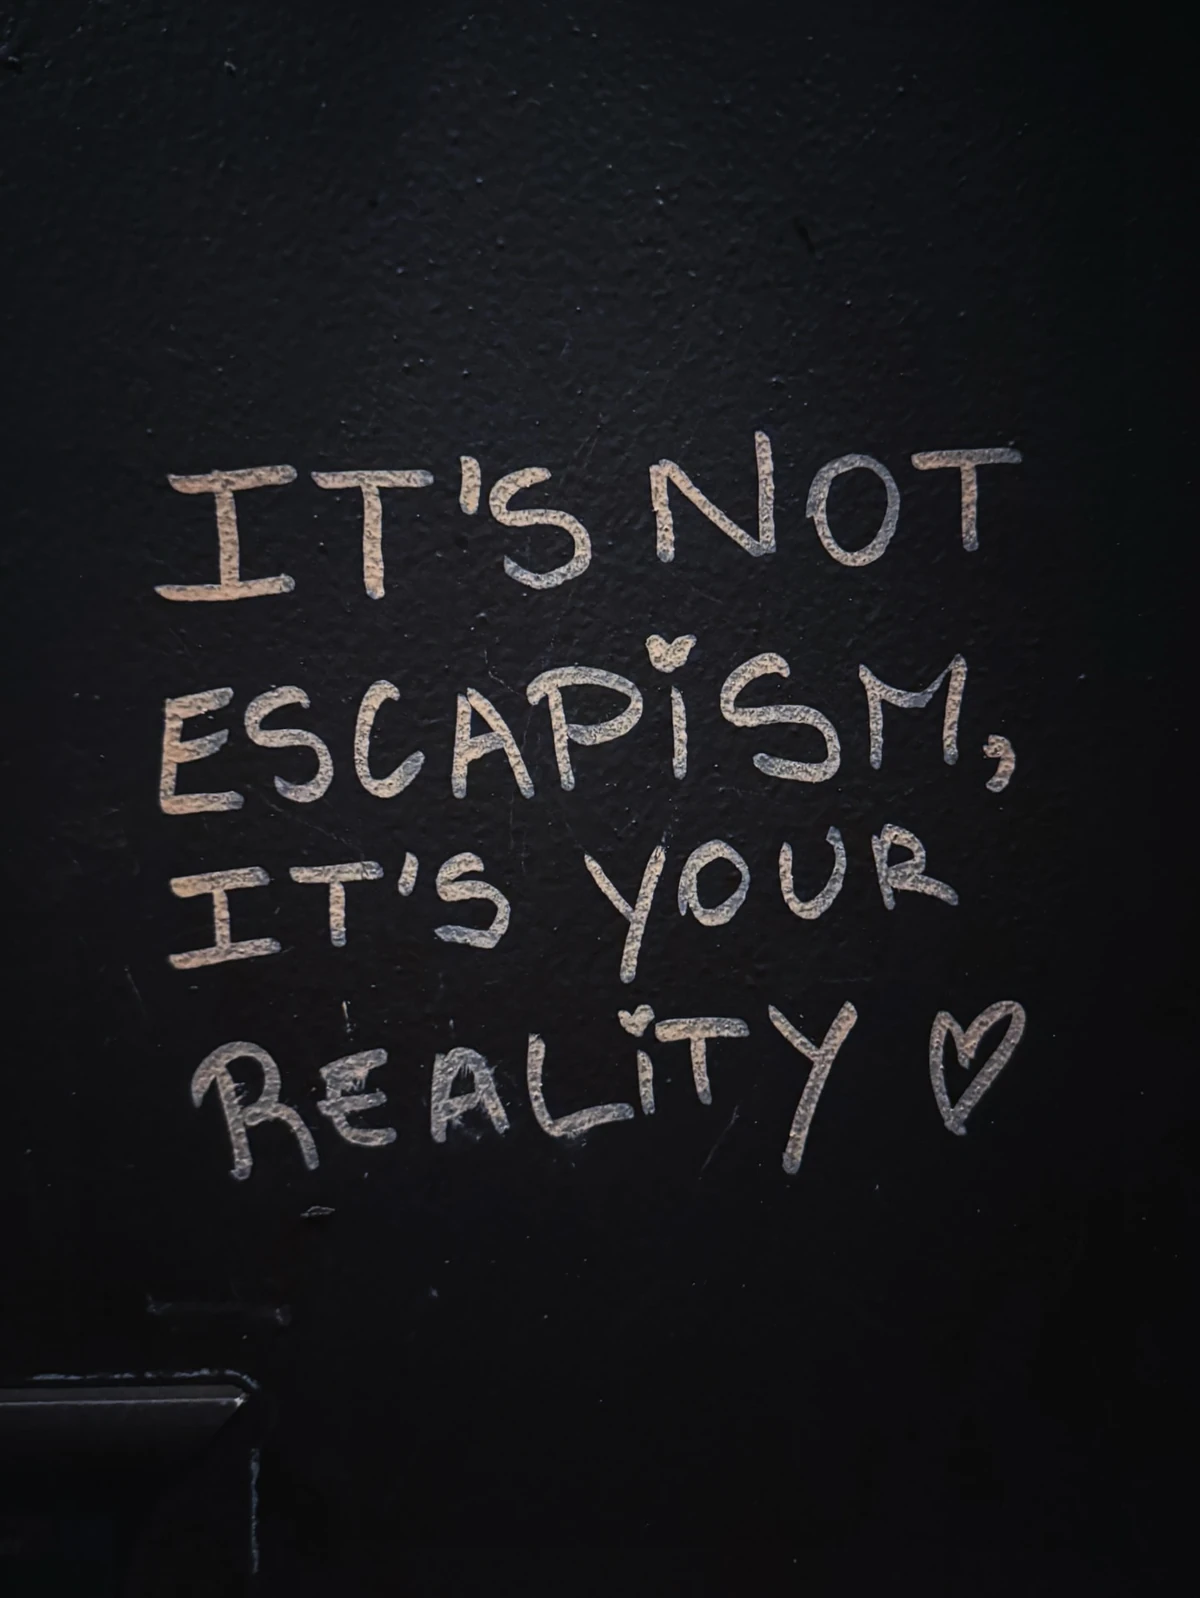 IT'S NOT
ESCAPiSM,
IT'S YOUR
REALiTY ♡